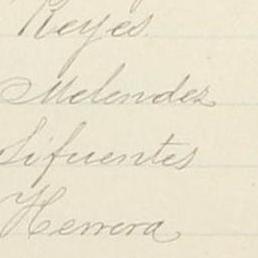 Reyes
Melendez
Sifuentes
Herrera